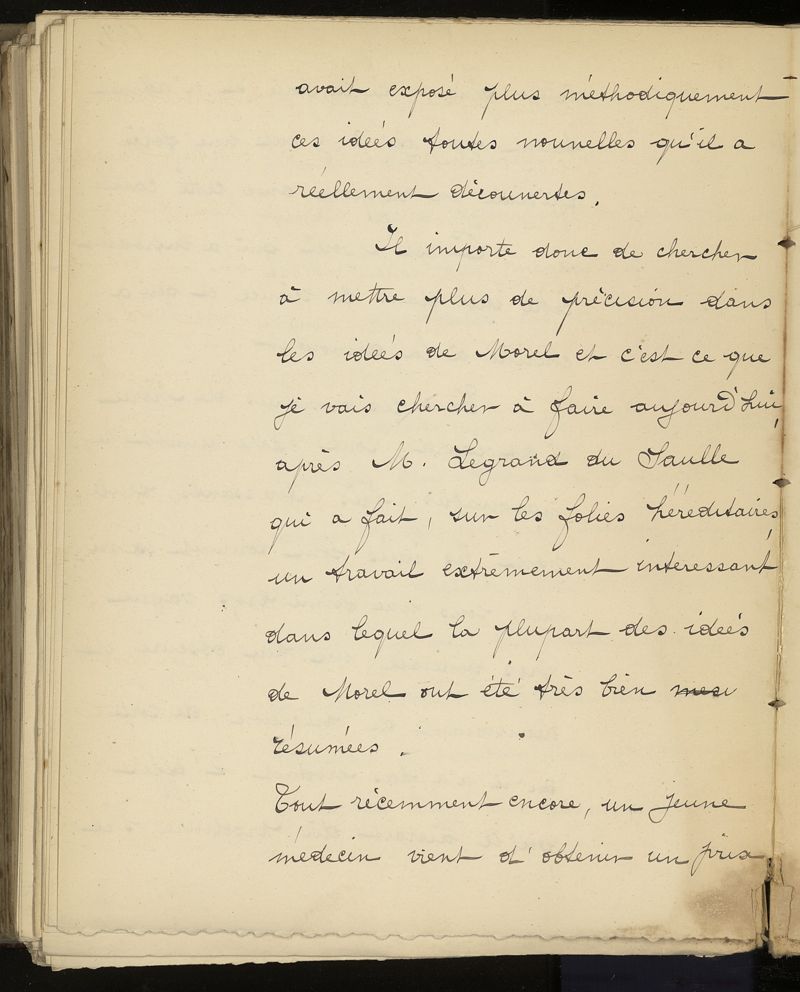 avait exposé plus méthodiquement
ces idées toutes nouvelles qu'il a
réellement découvertes.
Il importe donc de chercher
à mettre plus de précision dans
les idées de Morel et c'est ce que
je vais chercher à faire aujourd'hui,
après M. Legrand du Saulle
qui a fait, sur les folies héréditaires,
un travail extrêmement intéressant
dans lequel la plupart des idées
de Morel ont été très bien
résumées.
Tout récemment encore, un jeune
médecin vient d'obtenir un prix